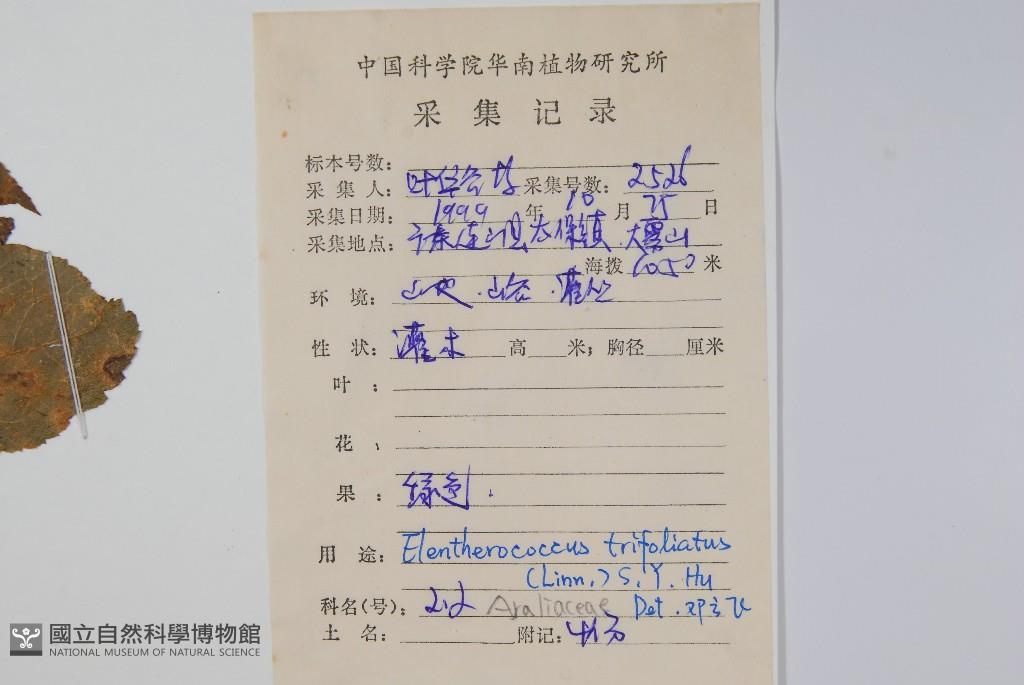 中国科学院华南植物研究所
采集记录
标本号数：
采集人：叶华谷 采集号数：2526
采集日期：1999年10月25日
采集地点：广东连山县太保镇 大雾山
海拨1050米
环境：山地．山谷．灌丛
性状：灌木 高 米；胸径 厘米
叶：
花、
果：绿色．
用途：Elentherococcus trifoliatus
(Linn.) S. Y. Hu
科名(号)：212 Araliaceae Det.邓云飞
土名： 附记：
國立自然科學博物館
NATIONAL MUSEUM OF NATURAL SCIENCE